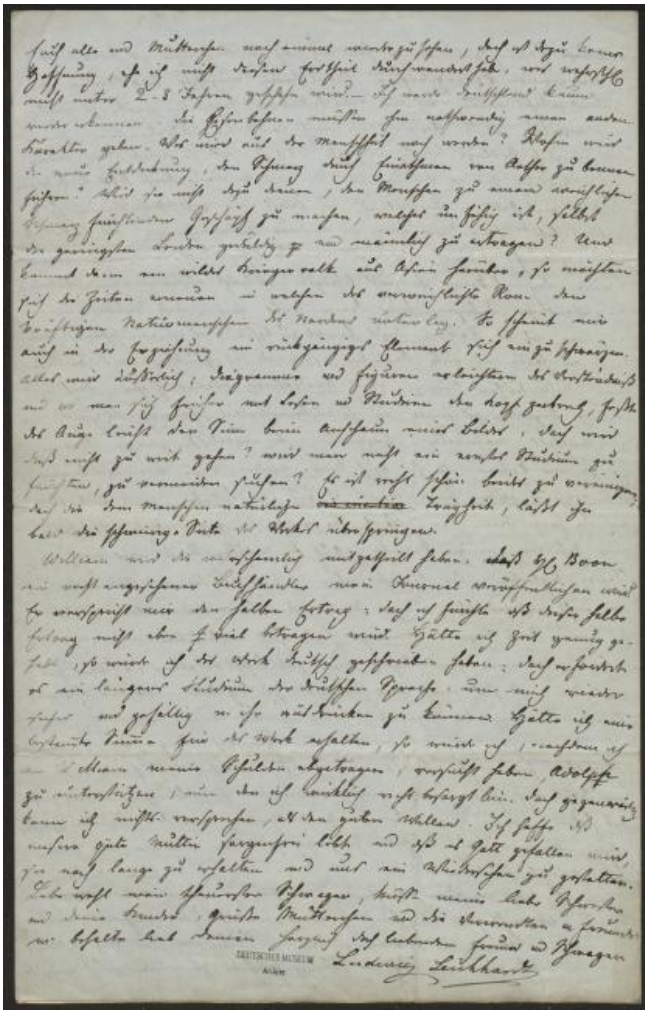 Euch alle und Mütterchen noch einmal wiederzusehen, doch ist dazu keine
Hoffnung, ehe ich nicht diesen Erdtheil durchwandert habe, was wahrsch.
nicht unter 2-3 Jahren geschehen wird. – Ich werde Deutschland kaum
wieder erkennen. die Eisenbahnen müssen ihm nothwendig einen andern
Karakter geben. Was wird aus der Menschheit noch werden? Wohin wird
die neue Entdeckung, den Schmerz durch Einathmen von Aether zu bannen
führen? Wird sie nicht dazu dienen, den Menschen zu einem weichlichen
Schmerz fürchtenden Geschöpf zu machen, welches unfähig ist, selbst
die geringsten Leiden geduldig und männlich zu ertragen? Und
kommt dann ein wildes Kriegervolk aus Asien herüber, so möchten
sich die Zeiten erneuen in welchen das verweichlichte Rom den
kräftigen Naturmenschen des Nordens unterlag. So scheint mir
auch in der Erziehung ein rückgängiges Element sich einzuschwärzen.
Alles wird äusserlich; diagramme und Figuren erleichtern das Verständniß
und wo man sich früher mit Lesen und Studiren den Kopf zerbrach,
das Auge leicht den Sinn beim Anschaun eines Bildes. doch wird
dieß nicht zu weit gehen? wird man nicht ein ernstes Studium zu
fürchten, zu vermeiden suchen? Es ist recht schön beides zu vereinigen,
doch die dem Menschen natürliche Trägheit, läßt ihn
bald die schwierige Seite des Werkes überspringen.
William wird dir wahrscheinlich mitgetheilt haben, daß H. Boon
ein recht angesehener Buchhändler mein Journal veröffentlichen wird
Er verspricht mir den halben Ertrag; doch ich fürchte daß dieser halbe
Ertrag nicht eben viel betragen wird. Hätte ich Zeit genug ge-
habt, so würde ich das Werk deutsch geschrieben haben; doch erforderte
es ein längeres Studium der deutschen Sprache, um mich wieder
sicher und gefällig in ihr ausdrücken zu können. Hätte ich eine
bestimmte Summe für das Werk erhalten, so würde ich, nachdem ich
meine Schulden abgetragen, versucht haben, Adolph
zu unterstützen, um den ich wirklich recht besorgt bin. doch gegenwärtig
kann ich nichts versprechen, als den guten Willen. Ich hoffe daß
unsere gute Mutter sorgenfrei lebt und daß es Gott gefallen wird,
sie noch lange zu erhalten und uns ein Wiedersehen zu gestatten.
Lebe wohl mein theuerster Schwager, küsse meine liebe Schwester
und deine Kinder, grüße Mütterchen und die Verwandten u Freunde
u. behalte lieb deinen herzlich dich liebenden Freund u Schwager
Ludwig Leichhardt
DEUTSCHES MUSEUM
Archiv